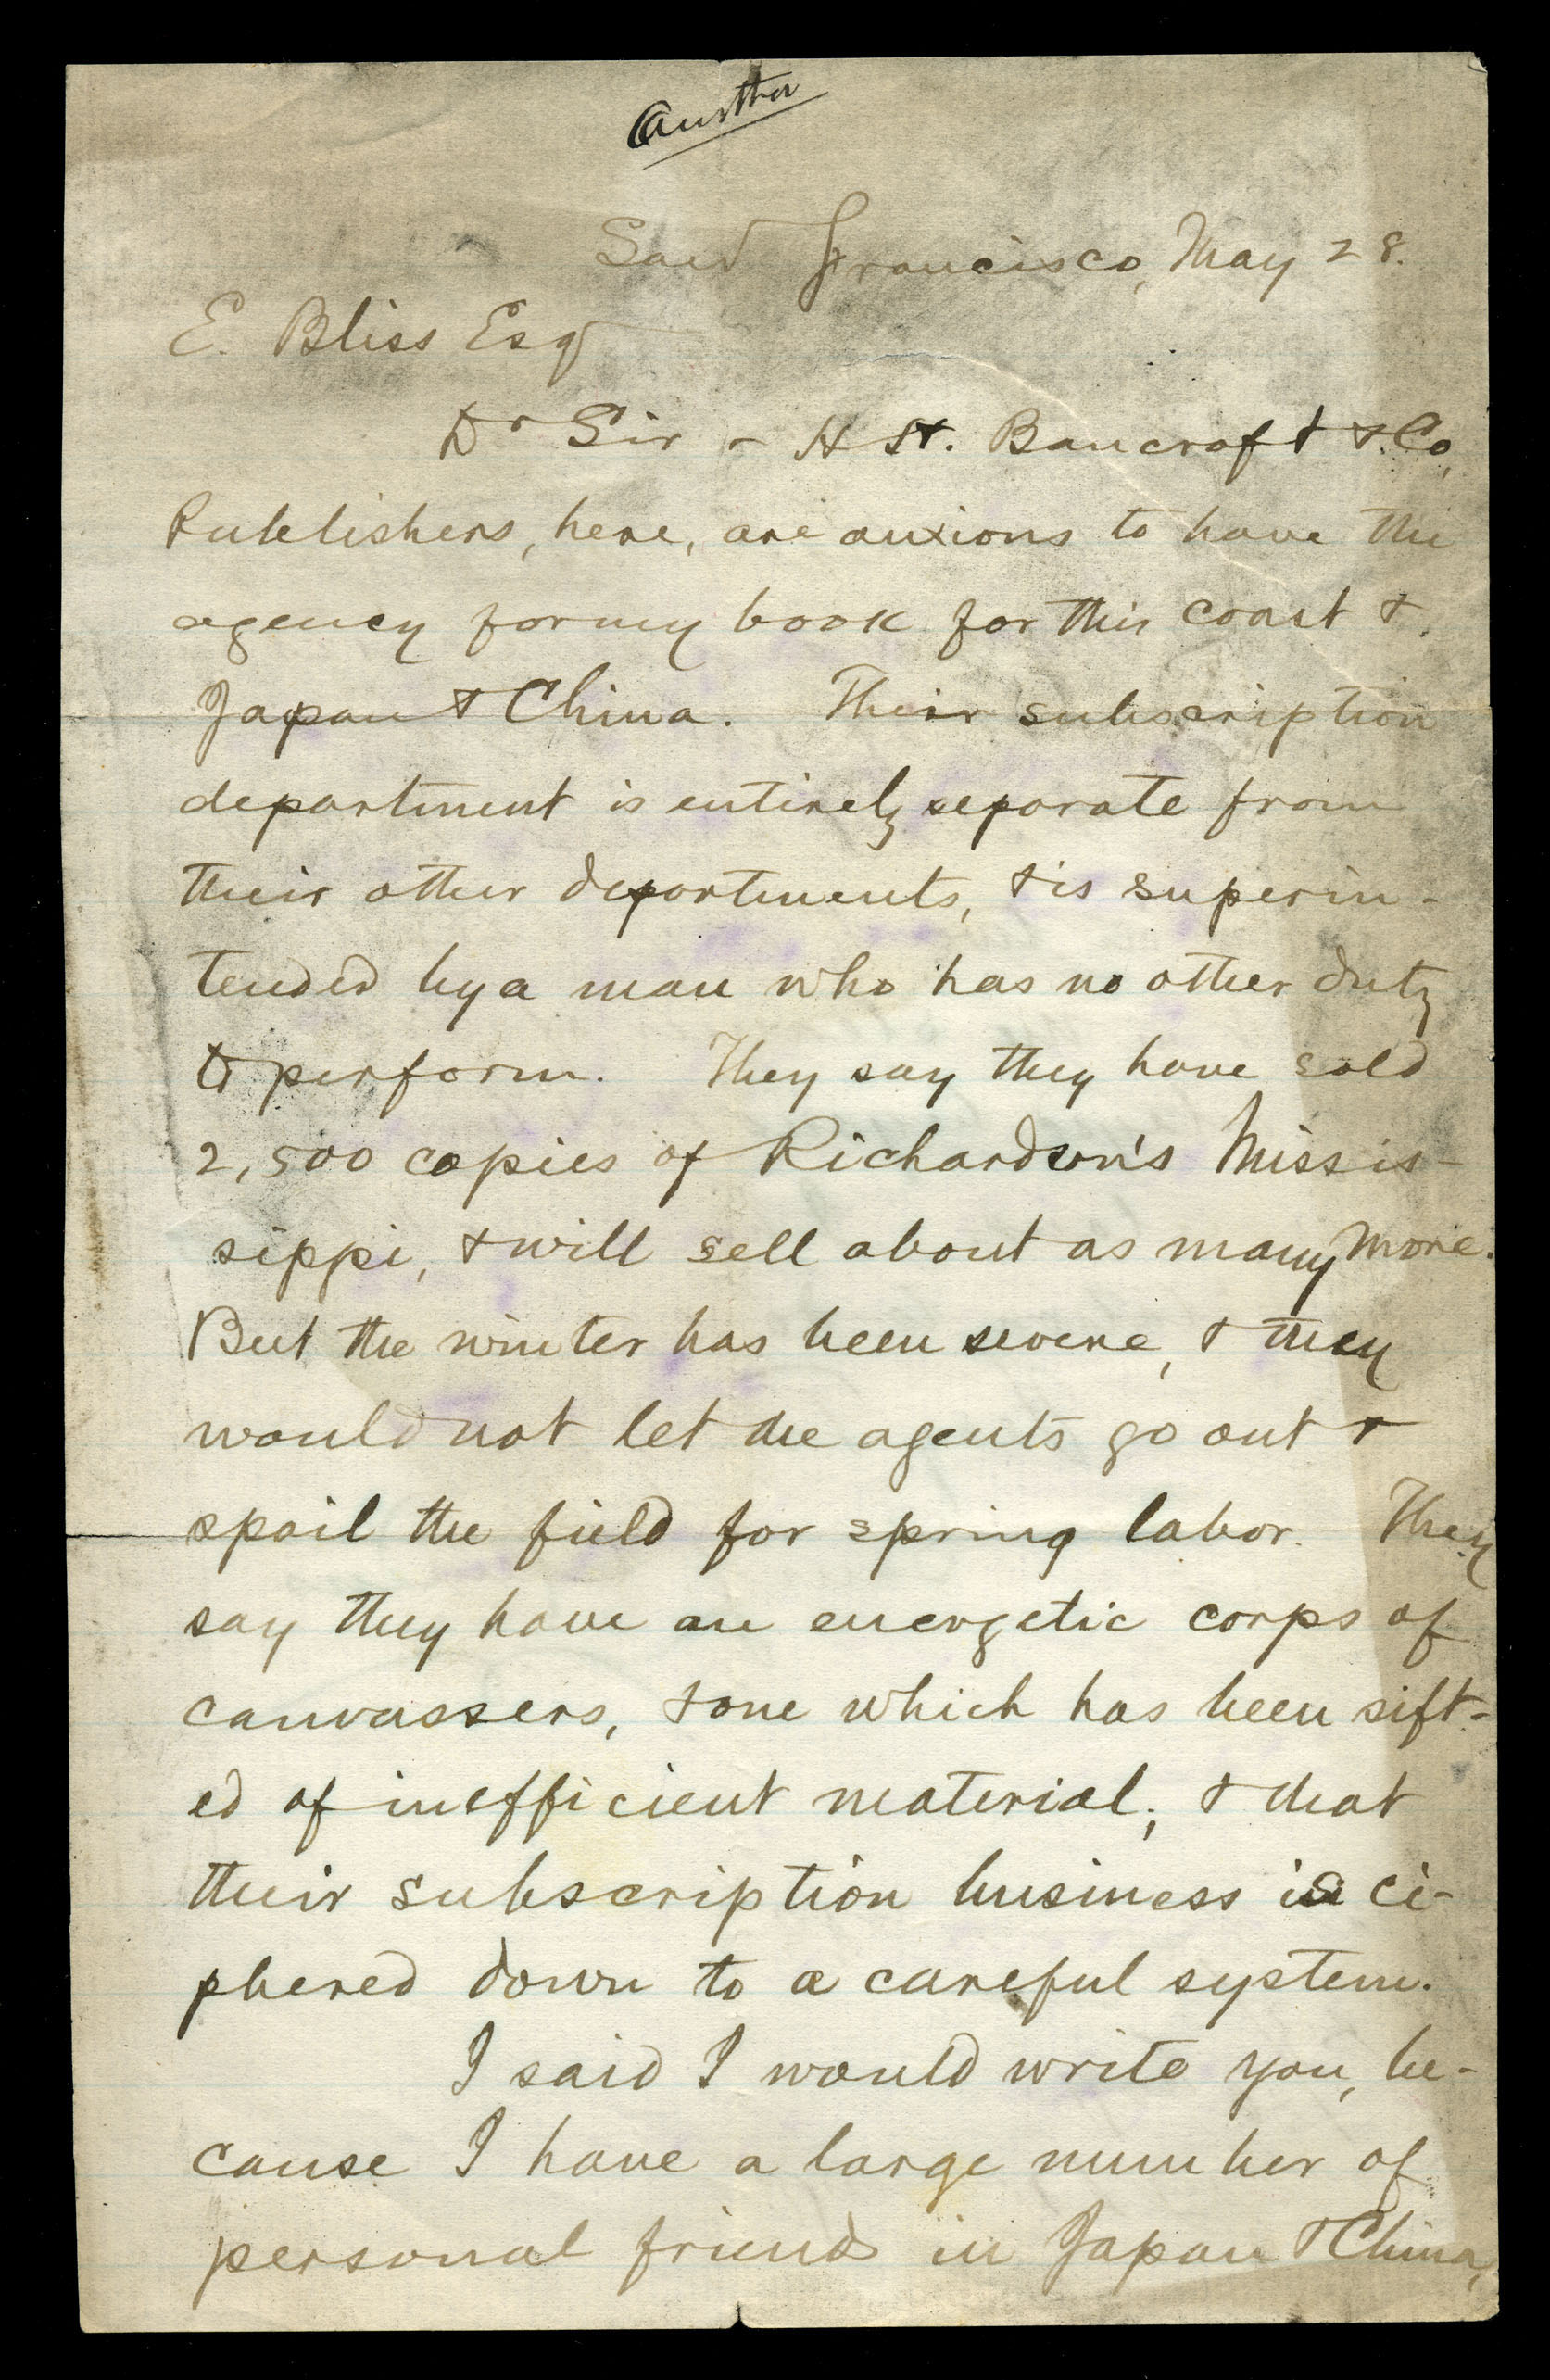 Author
San Francisco, May 28.
E. Bliss Esq
Dr Sir – H H. Bancroft & Co,
Publishers, here, are anxious to have the
agency for my book for this coast &
Japan & China. Their subscription
department is entirely separate from
their other departments, & is superin-
tended by a man who has no other duty
to perform. They say they have sold
2,500 copies of Richardson's Missis-
sippi, & will sell about as many more.
But the winter has been severe, & they
would not let the agents go out &
spoil the field for spring labor. They
say they have an energetic corps of
canvassers, & one which has been sift-
ed of inefficient material; & that
their subscription business is ci-
phered down to a careful system.
I said I would write you, be-
cause I have a large number of
personal friends in Japan & China,